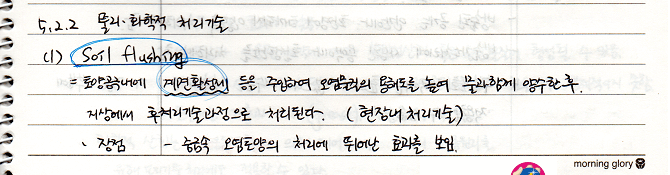 5.2.2 물리·화학적 처리기술
(1) Soil flushing
= 토양공극내에 계면활성제 등을 주입하여 오염물질의 용해도를 높여 물과함께 양수한후.
지상에서 후처리기술과정으로 처리된다. (현장내 처리기술)
、장점 - 중금속 오염토양의 처리에 뛰어난 효과를 보임.
morning glory